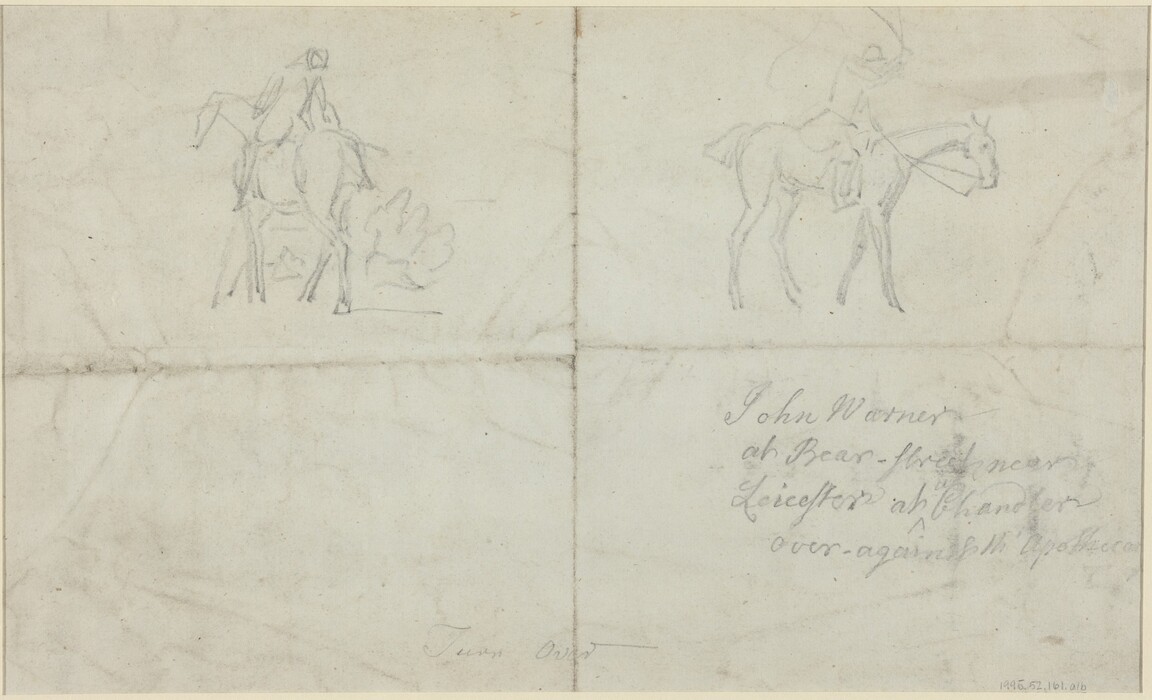 John Warner
at Bear-street near
Leicester at a Chandler
over-against th' Apothecar
Turn Over
1995.52.161.a/b